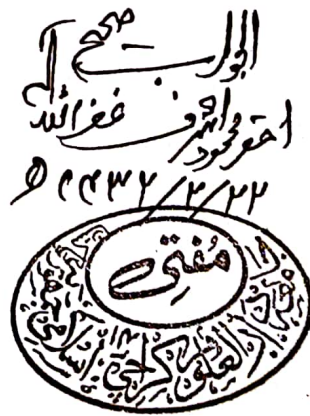 الجواب صحیح
احقر محمود اشرف غفر اللہ لہ
۲۲/۲/۱۴۳۲ھ
مفتی
دار العلوم کراچی